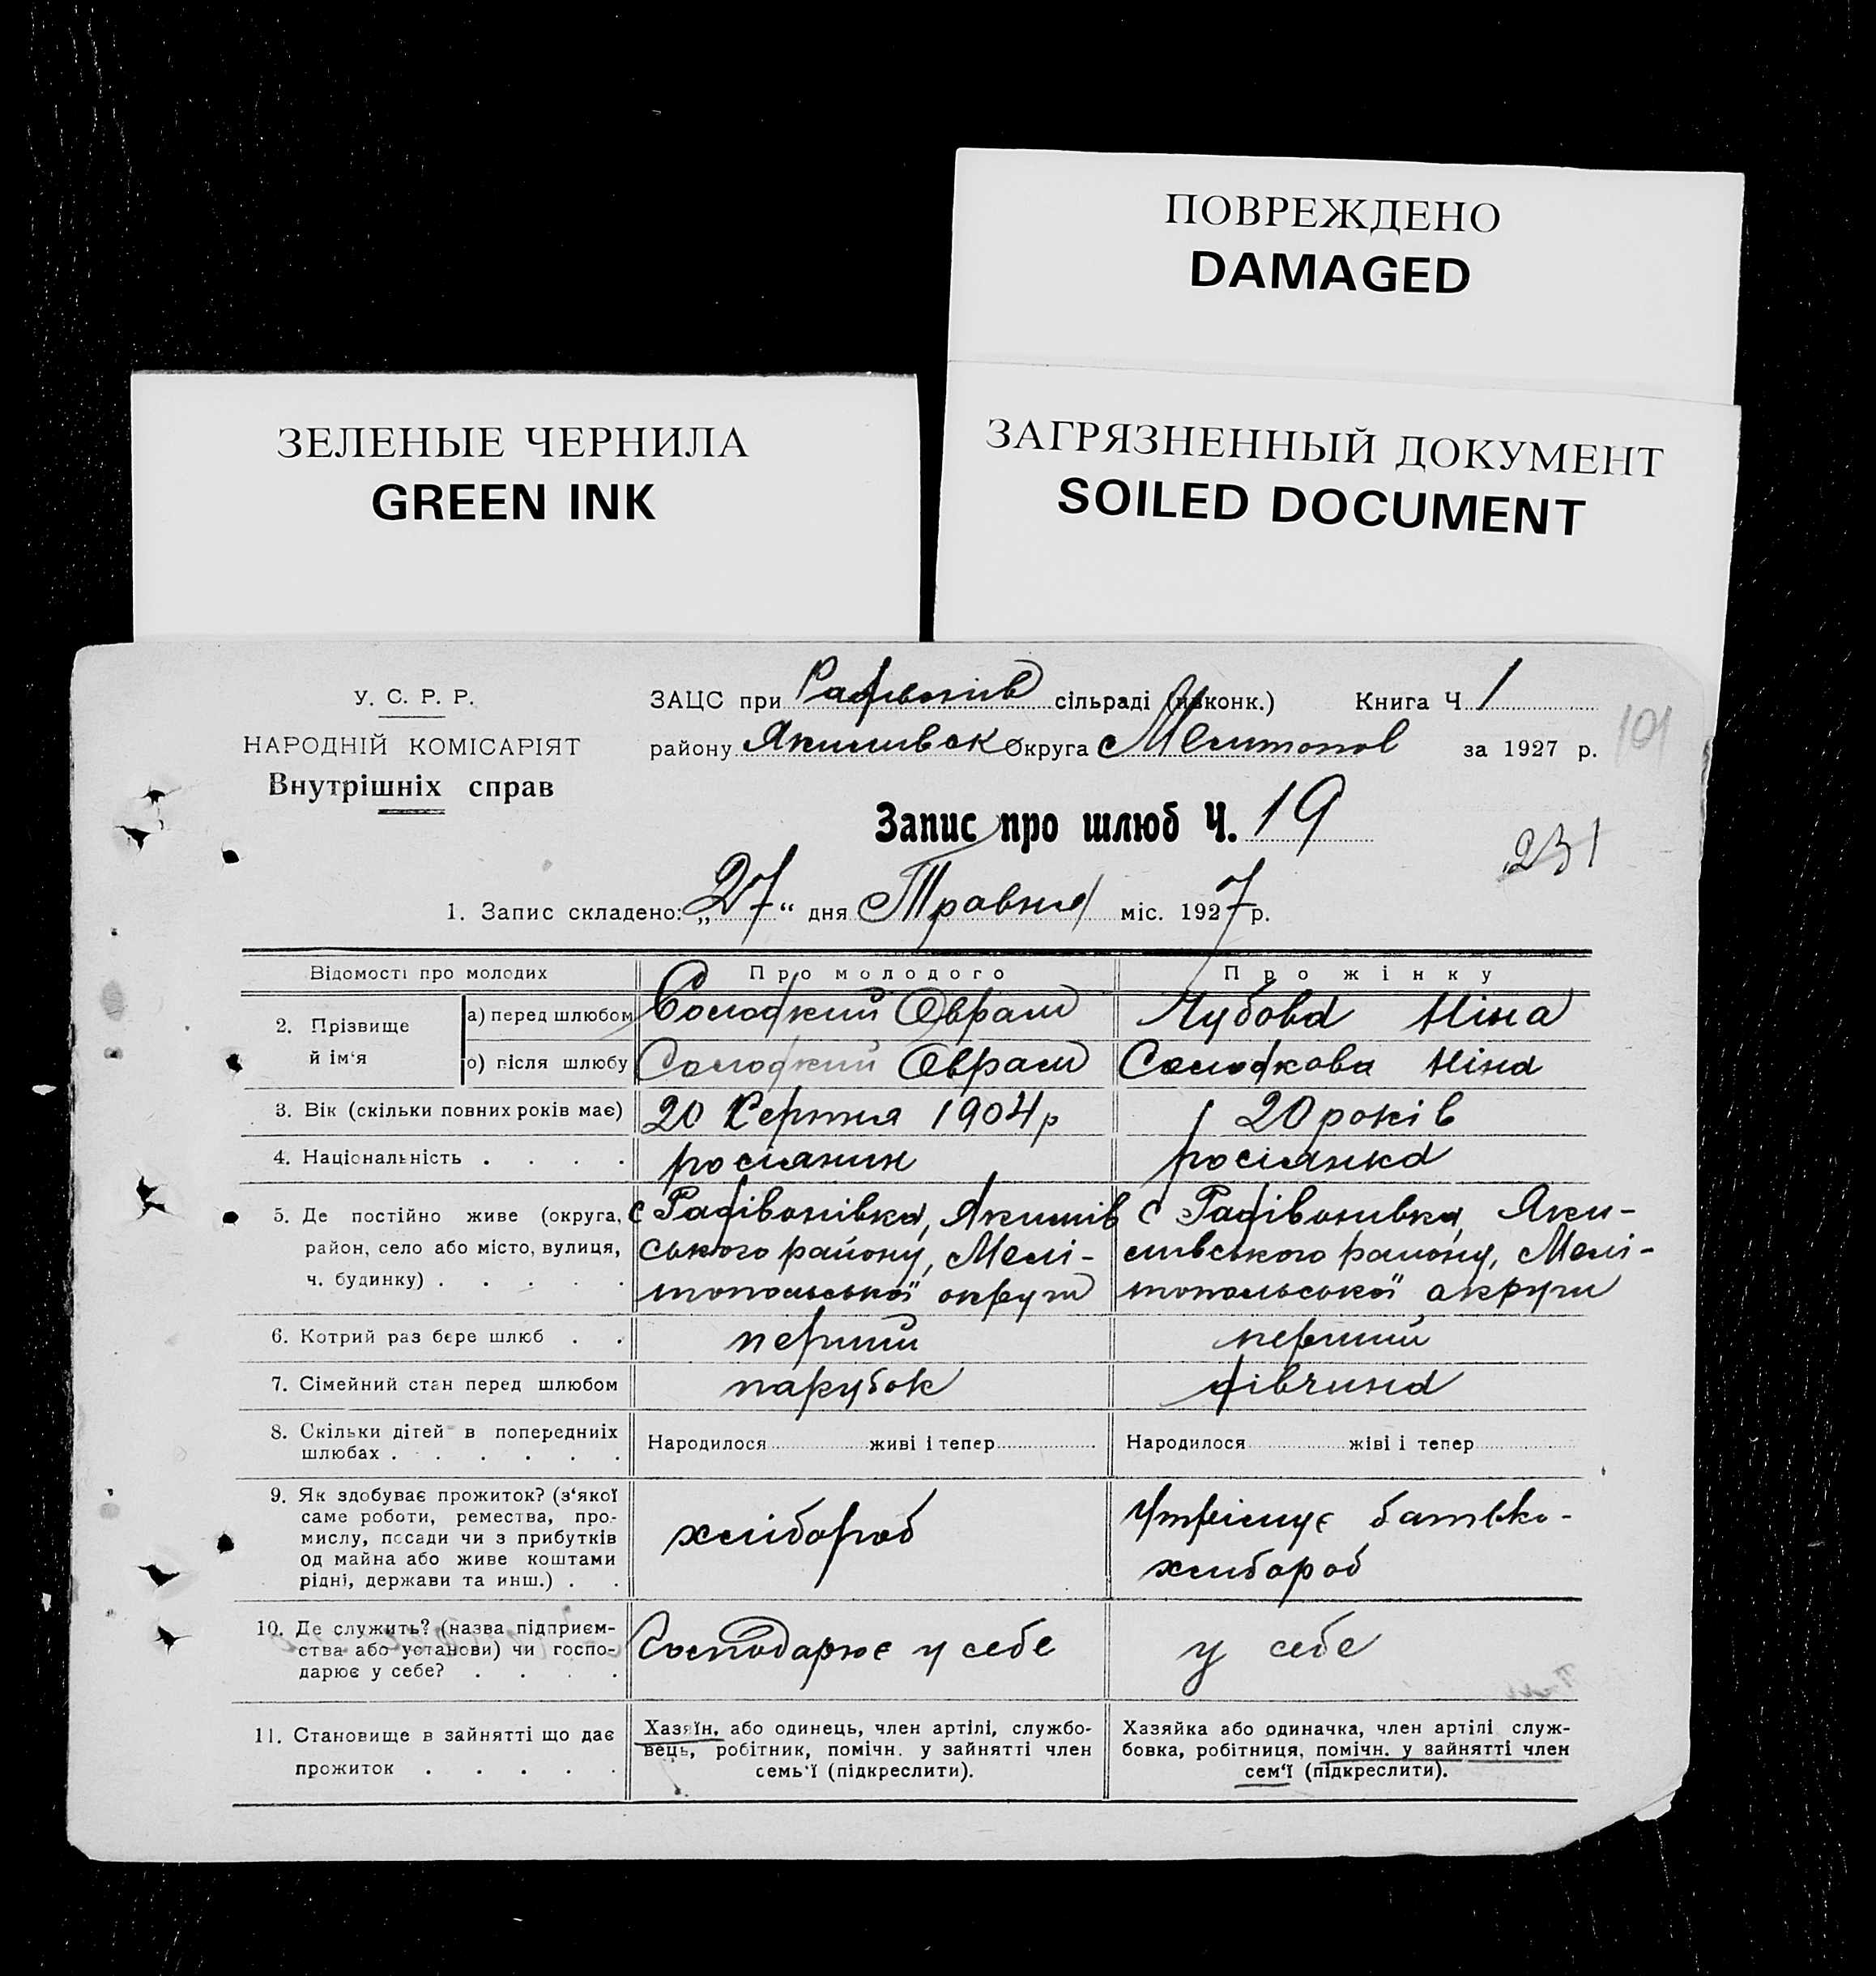 ПОВРЕЖДЕНО
DAMAGED
ЗЕЛЕНЫЕ ЧЕРНИЛА
GREEN INK
ЗАГРЯЗНЕННЫЙ ДОКУМЕНТ
SOILED DOCUMENT
У. С. Р. Р.
НАРОДНІЙ КОМІСАРІЯТ
Внутрішніх справ
ЗАЦС при Радівонів сільраді (
виконк.) Книга Ч 1
району Якимівськ Округа Мелітопол за 1927 р.
101
Запис про шлюб Ч. 19
231
1. Запис складено: „27“ дня Травня міс. 1927 р.
Відомості про молодих
Про молодого
Про жінку
2. Прізвище й ім‘я
а) перед шлюбом
Солодкий Оврам
Чубова Ніна
о) після шлюбу
Солодкий Оврам
Солодкова Ніна
3. Вік (скільки повних років має)
20 Серпня 1904 р
20 років
4. Національність . . . .
росіянин
росіянка
5. Де постійно живе (округа,
район, село або місто, вулиця,
ч. будинку) . . . . .
с Радівонівка, Якимів
ського району, Мелі-
топольської округи
с Радівонивка, Яки-
мивського району, Мелі-
топольської округи
6. Котрий раз бере шлюб . .
перший
перший
7. Сімейний стан перед шлюбом
парубок
дівчина
8. Скільки дітей в попередніх
шлюбах . . . . . .
Народилося живі і тепер
Народилося жіві і тепер
9. Як здобуває прожиток? (з‘якої
саме роботи, ремества, про-
мислу, посади чи з прибутків
од майна або живе коштами
рідні, держави та инш.) . .
хлібороб
Утрімує батько-
хлибороб
10. Де служить? (назва підприєм-
ства або установи) чи госпо-
дарює у себе? . . . .
Господарює у себе
у себе
11. Становище в зайнятті що дає
прожиток . . . . .
Хазяїн, або одинець, член артілі, службо-
вець, робітник, помічн. у зайнятті член
семь‘ї (підкреслити).
Хазяйка або одиначка, член артілі служ-
бовка, робітниця, помічн. у зайнятті член
сем‘ї (підкреслити).